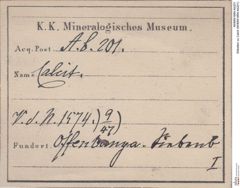 K. K. Mineralogisches Museum.
Acq. Post A. b. 201.
Name Calcit.
V. d. N. 1574.) 9/47)
Fundort Offenbanya. Siebenb
I